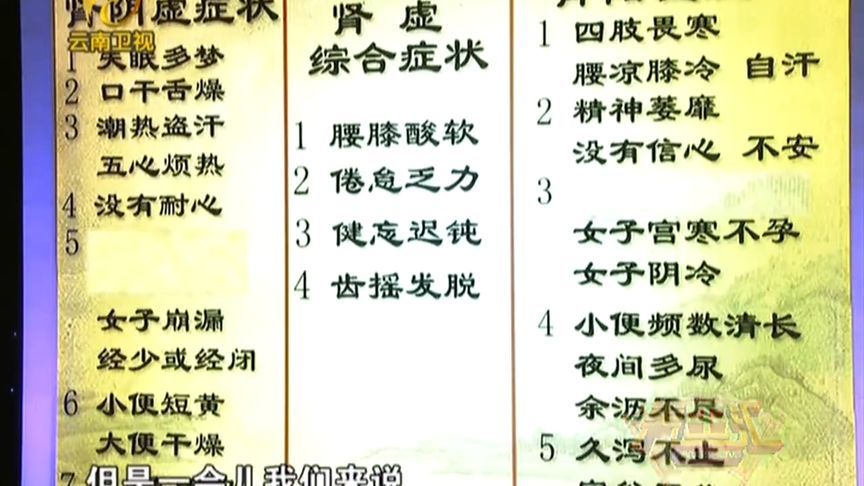 肾阴虚症状
云南卫视
1 失眠多梦
2 口干舌燥
3 潮热盗汗
五心烦热
4 没有耐心
5
女子崩漏
经少或经闭
6 小便短黄
大便干燥
7
肾虚
综合症状
1 腰膝酸软
2 倦怠乏力
3 健忘迟钝
4 齿摇发脱
1 四肢畏寒
腰凉膝冷 自汗
2 精神萎靡
没有信心 不安
3
女子宫寒不孕
女子阴冷
4 小便频数清长
夜间多尿
余沥不尽
5 久泻不止
但是一会儿我们来说